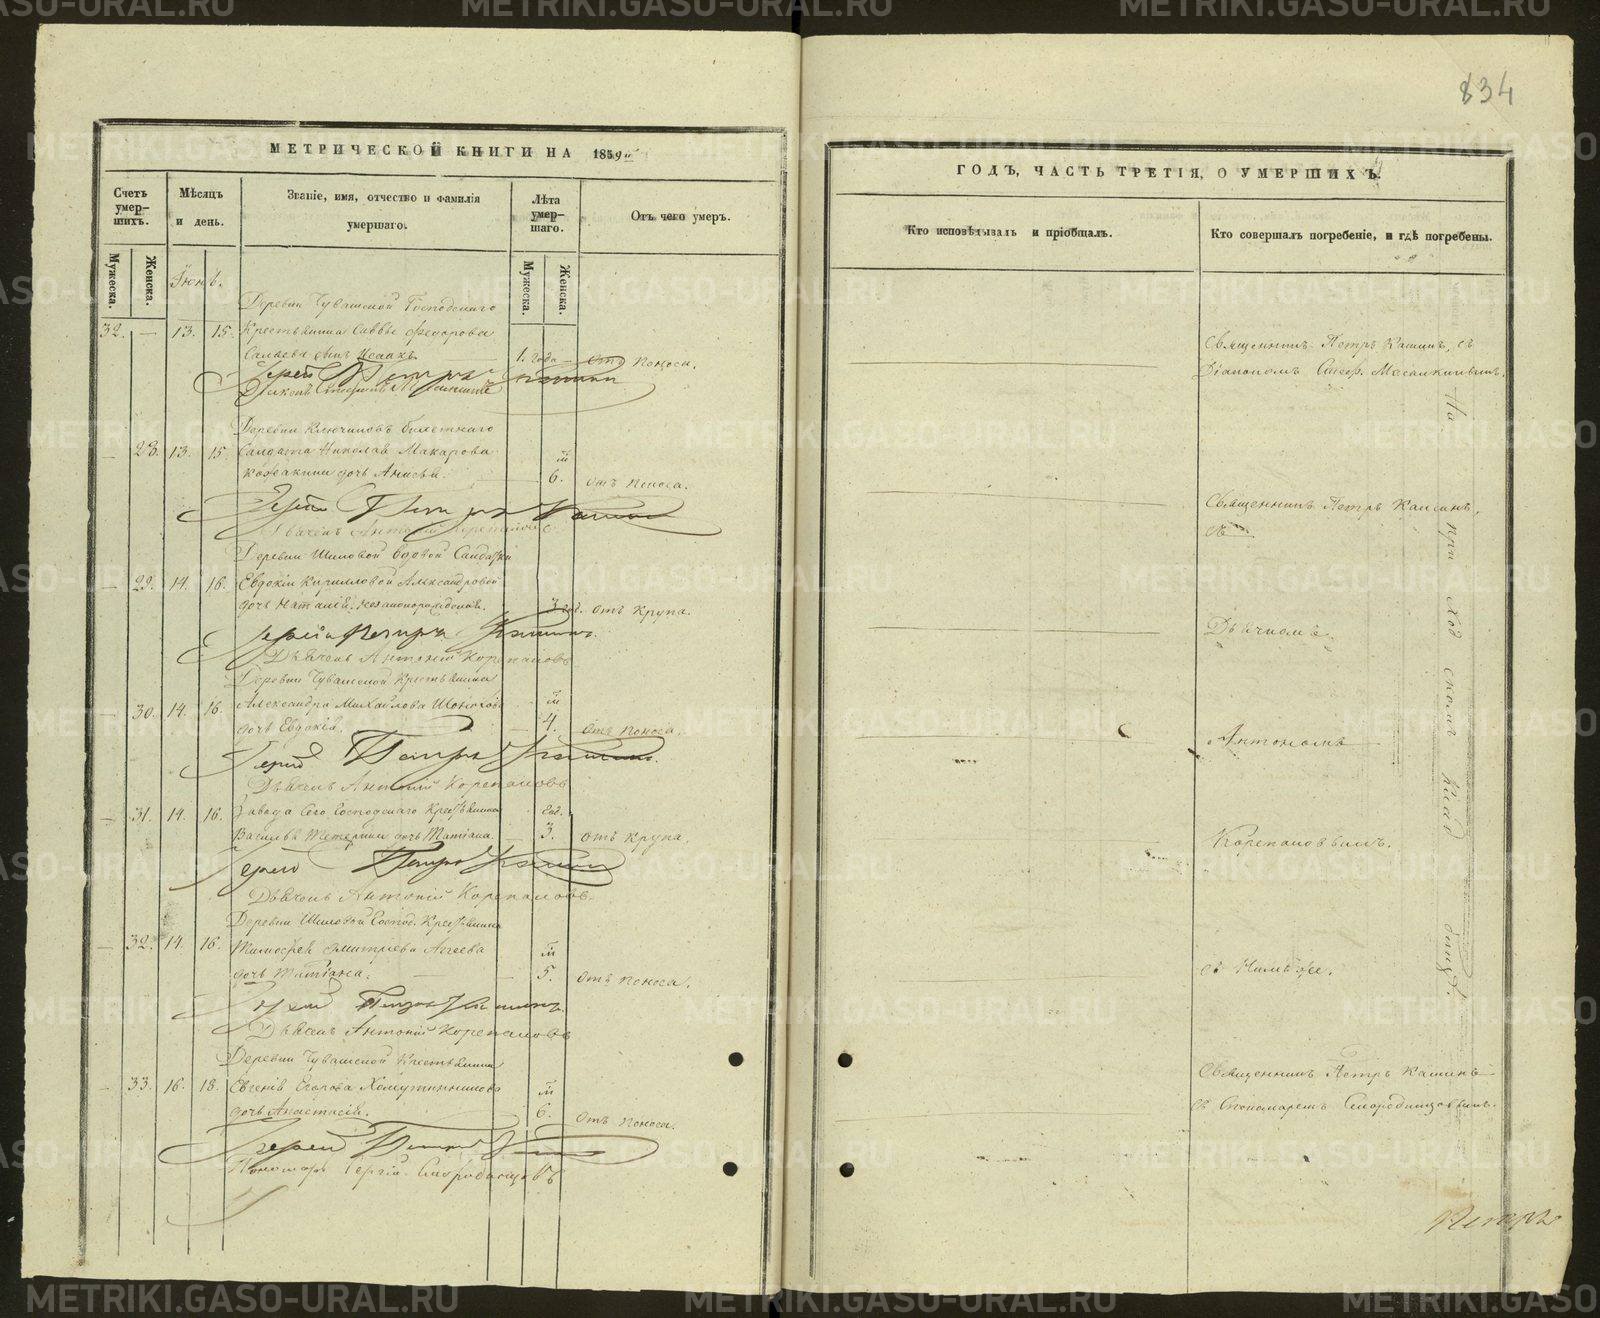 834
МЕТРИЧЕСКОЙ КНИГИ НА 1859
Счетъ умер-шихъ.
Мужеска.
Женска.
Мѣсяцъ и день.
Званіе, имя, отчество и фамилія умершаго.
Лѣта умер-шаго.
Мужеска.
Женска.
Отъ чего умеръ.
Іюнь.
Деревни Чувашской Господскаго
32. — 13. 15. Крестьянина Саввы Федорова
сынъ Исаакъ. 1. года — Отъ поноса.
Іерей Петръ Кашинъ
Деревни Ключиковъ билетнаго
— 28. 13. 15. Солдата Николая Макарова
дочь Анисья. 6. Отъ поноса.
Іерей Петръ Кашинъ
Дьячекъ Антоній Корепановъ
Деревни Шиловой вдовой Солдатки
— 29. 14. 16. Евдокіи Кирилловой Александровой
дочь Наталія, незаконорожденная. 3 год. Отъ крупа.
Іерей Петръ Кашинъ.
Дьячекъ Антоній Корепановъ
Деревни Чувашской Крестьянина
— 30. 14. 16. Александра Михайлова
дочь Евдокія. 4. Отъ поноса.
Іерей Петръ Кашинъ.
Дьячекъ Антоній Корепановъ
— 31. 14. 16. Завода Сего Господскаго Крестьянина год.
Василья Тетерина дочь Татіана. — 3. Отъ крупа.
Іерей Петръ Кашинъ
Дьячекъ Антоній Корепановъ.
Деревни Шиловой Господ. Крестьянина
— 32. 14. 16. Тимофея Дмитріева Агеева
дочь Татіана. 5. Отъ поноса.
Іерей Петръ Кашинъ.
Дьячекъ Антоній Корепановъ
Деревни Чувашской Крестьянина
— 33. 16. 18. Евгенія Егорова Хомутинникова
дочь Анастасія. 6. Отъ поноса.
Іерей Петръ
Пономарь Сергій Смородинцовъ
ГОДЪ, ЧАСТЬ ТРЕТІЯ, О УМЕРШИХЪ.
Кто исповѣдывалъ и пріобщалъ.
Кто совершалъ погребеніе, и гдѣ погребены.
Священникъ Петръ Кашинъ, съ
Діакономъ Стеф.
Священникъ Петръ Кашинъ,
съ
Дьячкомъ
Антоніемъ
Корепановымъ.
Священникъ Петръ Кашинъ
съ Пономаремъ Смородинцовымъ.
На при ход скомъ клад бищѣ.
Петръ
METRIKI.GASO-URAL.RU